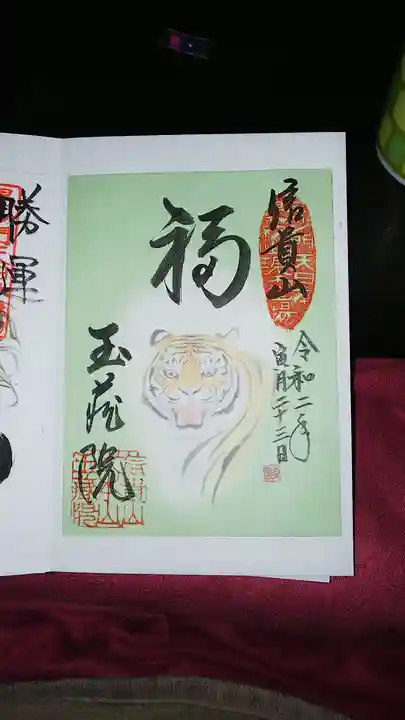 信貴山
福
令和二年
寅月二十三日
玉蔵院
勝運